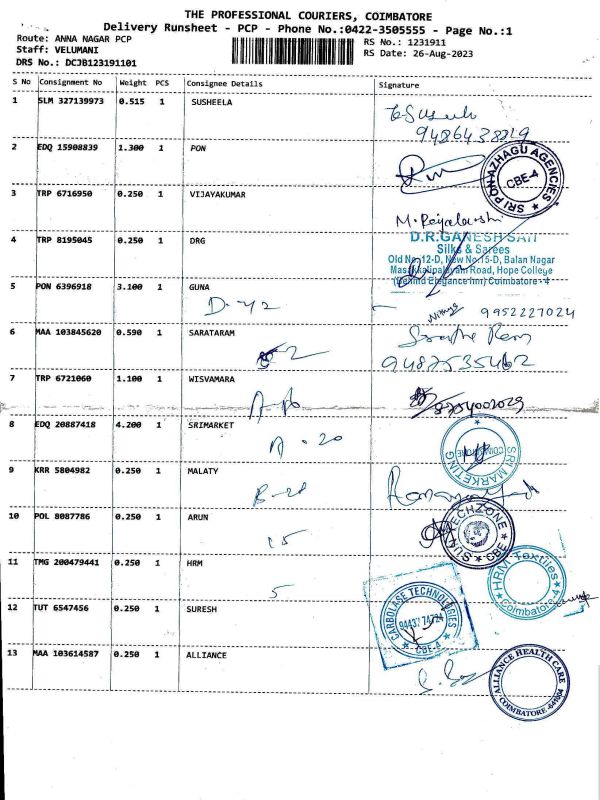 THE PROFESSIONAL COURIERS, COIMBATORE
Delivery Runsheet - PCP - Phone No.:0422-3505555 - Page No.:1
Route: ANNA NAGAR PCP
RS No.: 1231911
Staff: VELUMANI
RS Date: 26-Aug-2023
DRS No.: DCJB123191101
S No Consignment No Weight PCS Consignee Details Signature
1 SLM 327139973 0.515 1 SUSHEELA
9486438829
2 EDQ 15908839 1.300 1 PON
SRI PON AZHAGU AGENCIES
CBE-4
3 TRP 6716950 0.250 1 VIJAYAKUMAR
4 TRP 8195045 0.250 1 DRG
D.R.GANESH SAH
Silks & Sarees
Old No.12-D, New No.15-D, Balan Nagar
Masakkalipalayam Road, Hope College
(Behind Elegance Inn) Coimbatore - 4
5 PON 6396918 3.100 1 GUNA
D-42
9952227024
6 MAA 103845620 0.590 1 SARATARAM
9487535462
7 TRP 6721060 1.100 1 WISVAMARA
8754002029
8 EDQ 20887418 4.200 1 SRIMARKET
A-20
SRI MARKETING
COIMBATORE
9 KRR 5804982 0.250 1 MALATY
10 POL 8087786 0.250 1 ARUN
15
SUN TECHZONE
CBE
11 TMG 200479441 0.250 1 HRM
5
HRM Textiles
Coimbatore-4
12 TUT 6547456 0.250 1 SURESH
CARBOLASE TECHNOLOGIES
94437 74724
CBE-4
13 MAA 103614587 0.250 1 ALLIANCE
ALLIANCE HEALTH CARE
COIMBATORE-641004